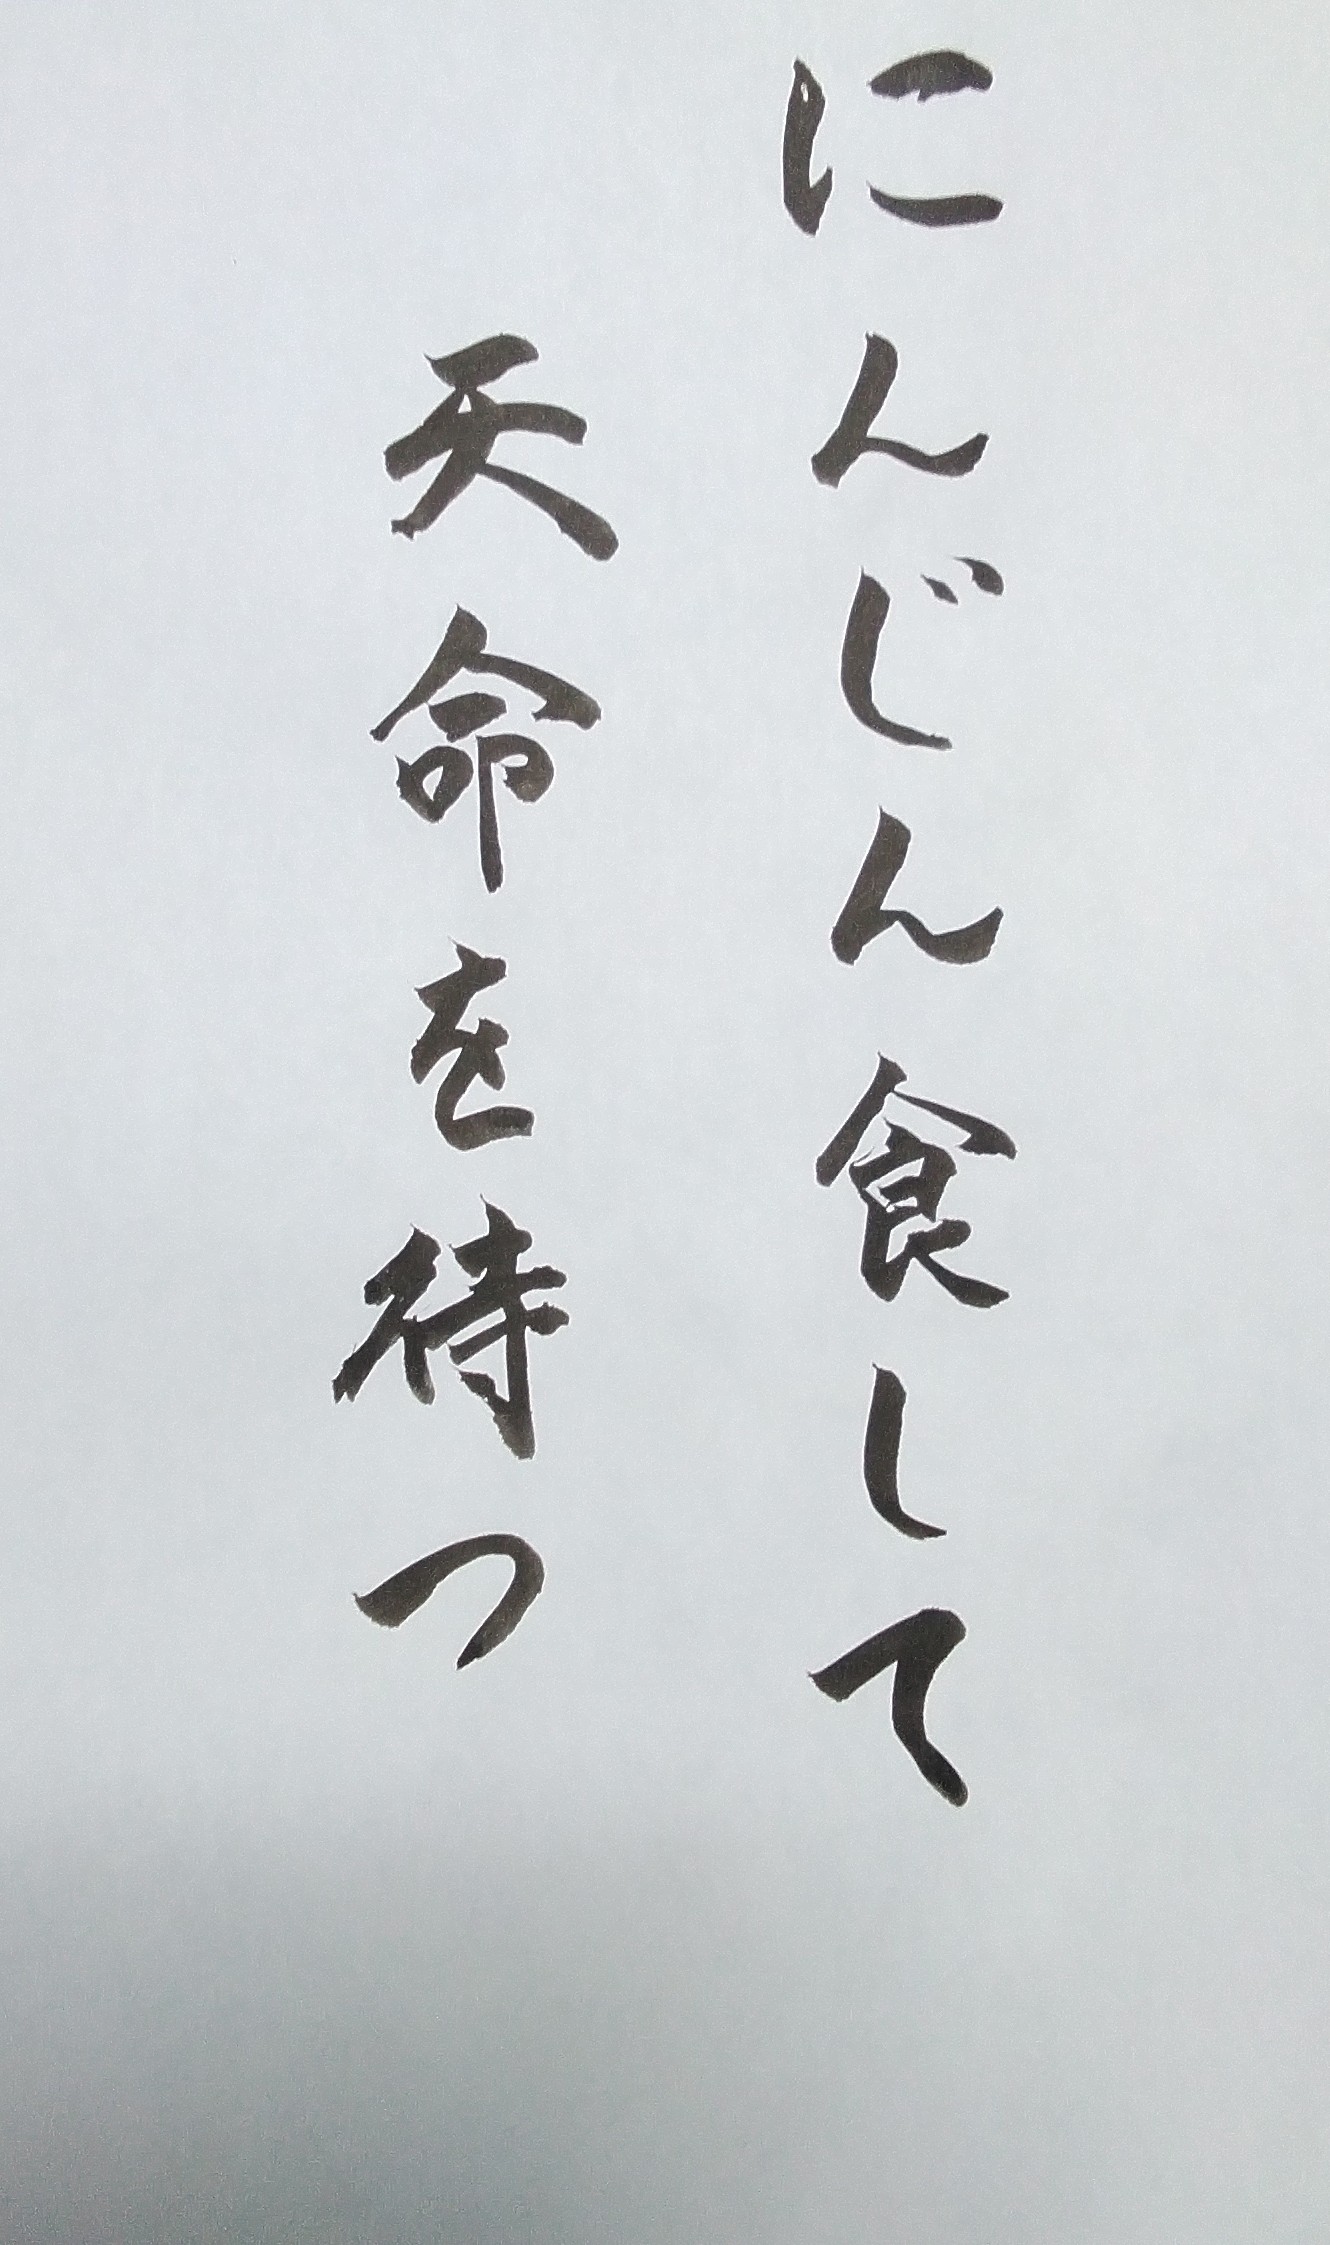 にんじん食して
天命を待つ